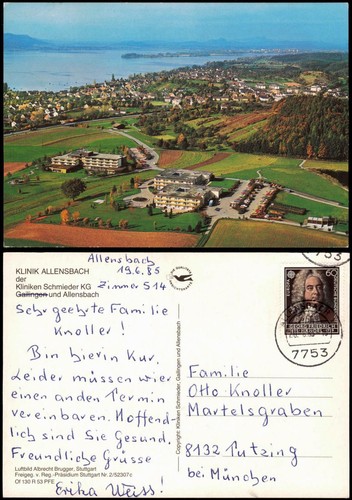 KLINIK ALLENSBACH
der
Kliniken Schmieder KG
Gailingen und Allensbach
Allensbach
19.6.85
Zimmer S14
Sehr geehrte Familie
Knoller!
Bin hierin Kur.
Leider müssen wir
einen anden Termin
vereinbaren. Hoffend-
lich sind Sie Gesund.
Freundliche Grüsse
Erika Weiss!
Luftbild Albrecht Brugger, Stuttgart
Freigeg. v. Reg.-Präsidium Stuttgart Nr. 2/52307c
Of 130 R 53 PFE
Copyright: Kliniken Schmieder, Gailingen und Allensbach
60
GEORG FRIEDRICH
7753
7753
Familie
Otto Knoller
Martelsgraben
8132 Tutzing
bei München